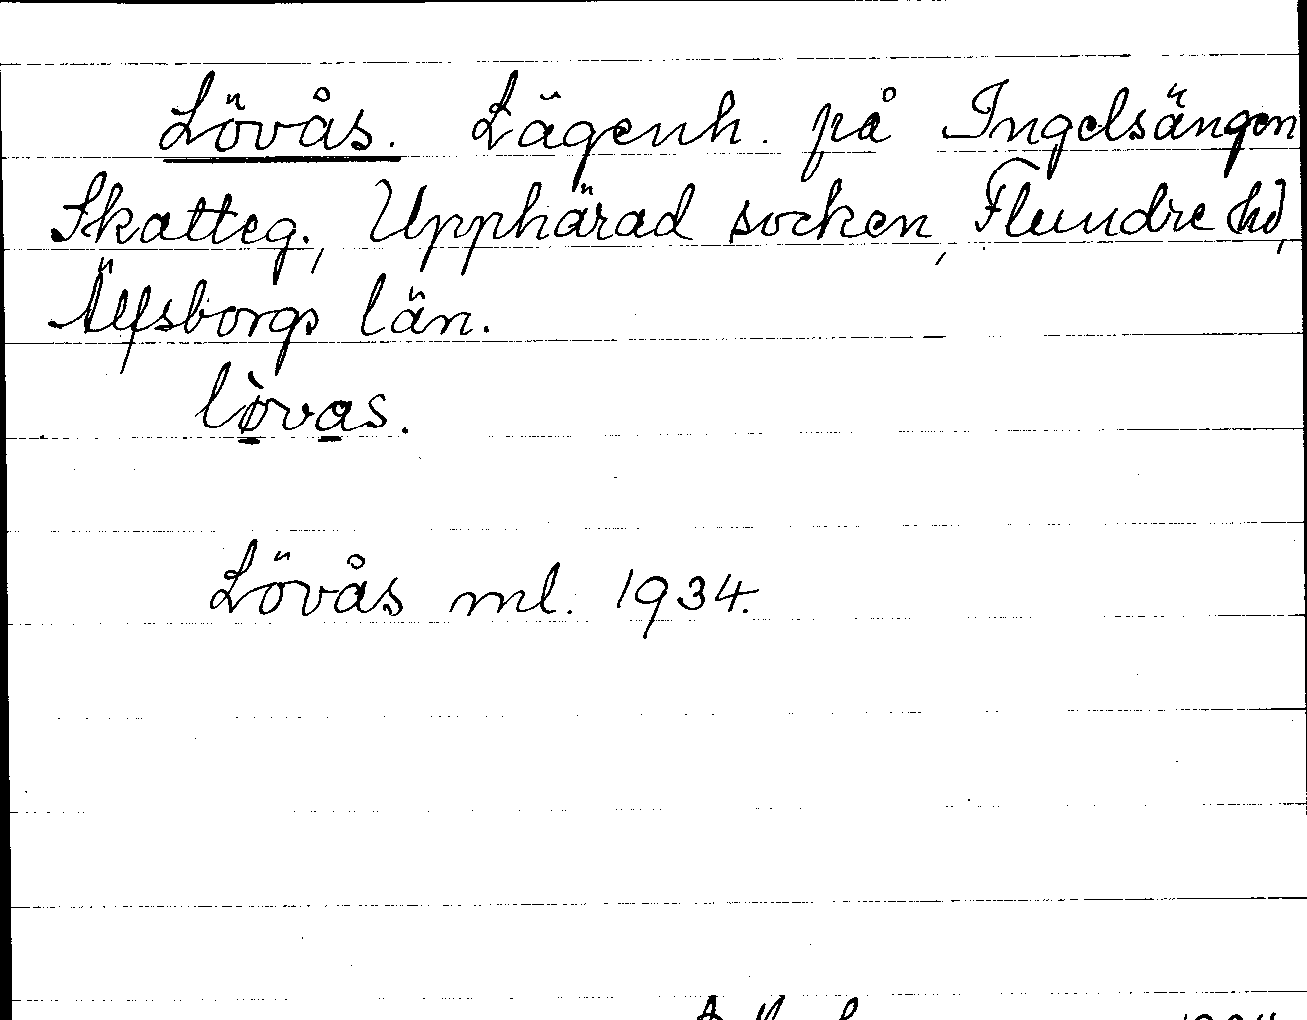 Lövås. Lägenh. på Ingelsängen
Skatteg., Upphärad socken, Flundre hd,
Älfsborgs län.
lø̀vas.
Lövås ml. 1934.